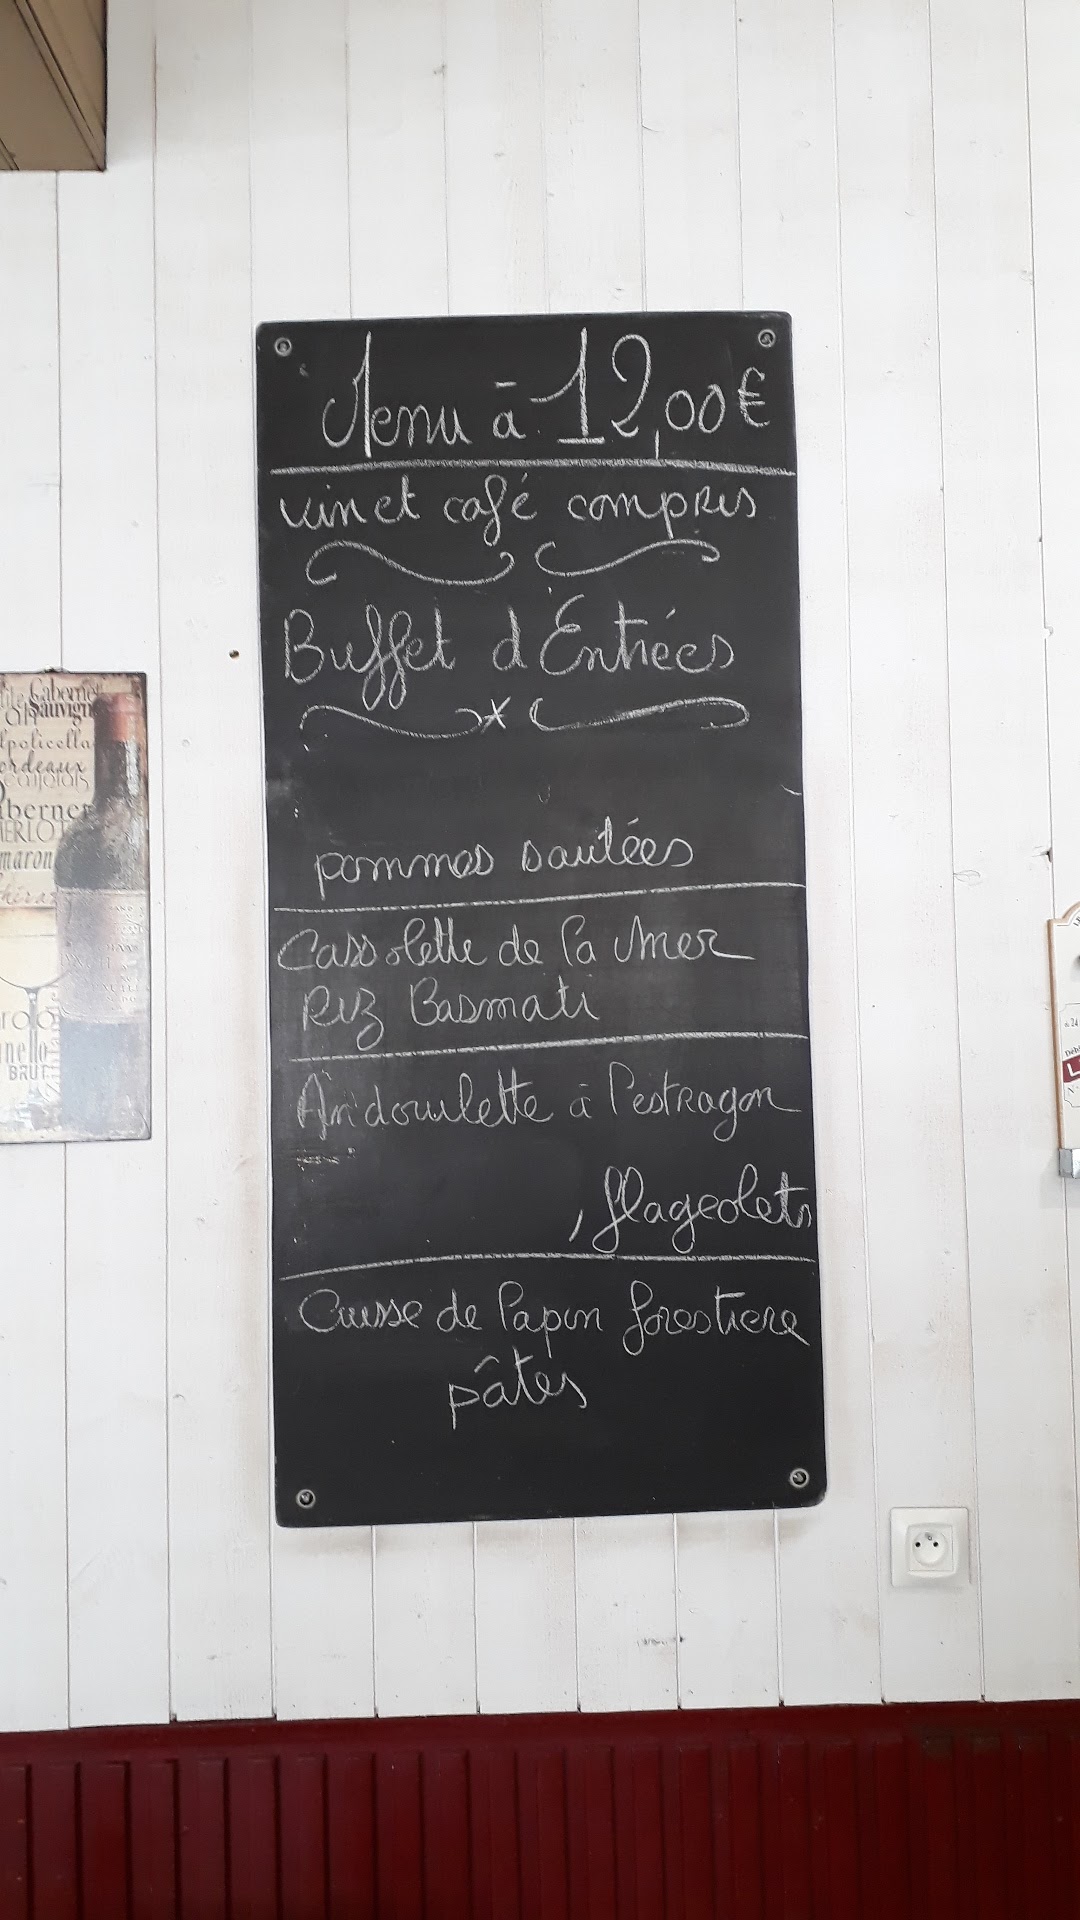 Menu à 12,00€
vin et café compris
Buffet d'Entrées
pommes sautées
Cassolette de la mer
Riz Basmati
Andouillette à l'estragon
, flageolets
Cuisse de lapin forestière
pâtes
Cabernet
Sauvign
lpolicella
ordeaux
abernet
MERLOT
maron
nello
BRUT